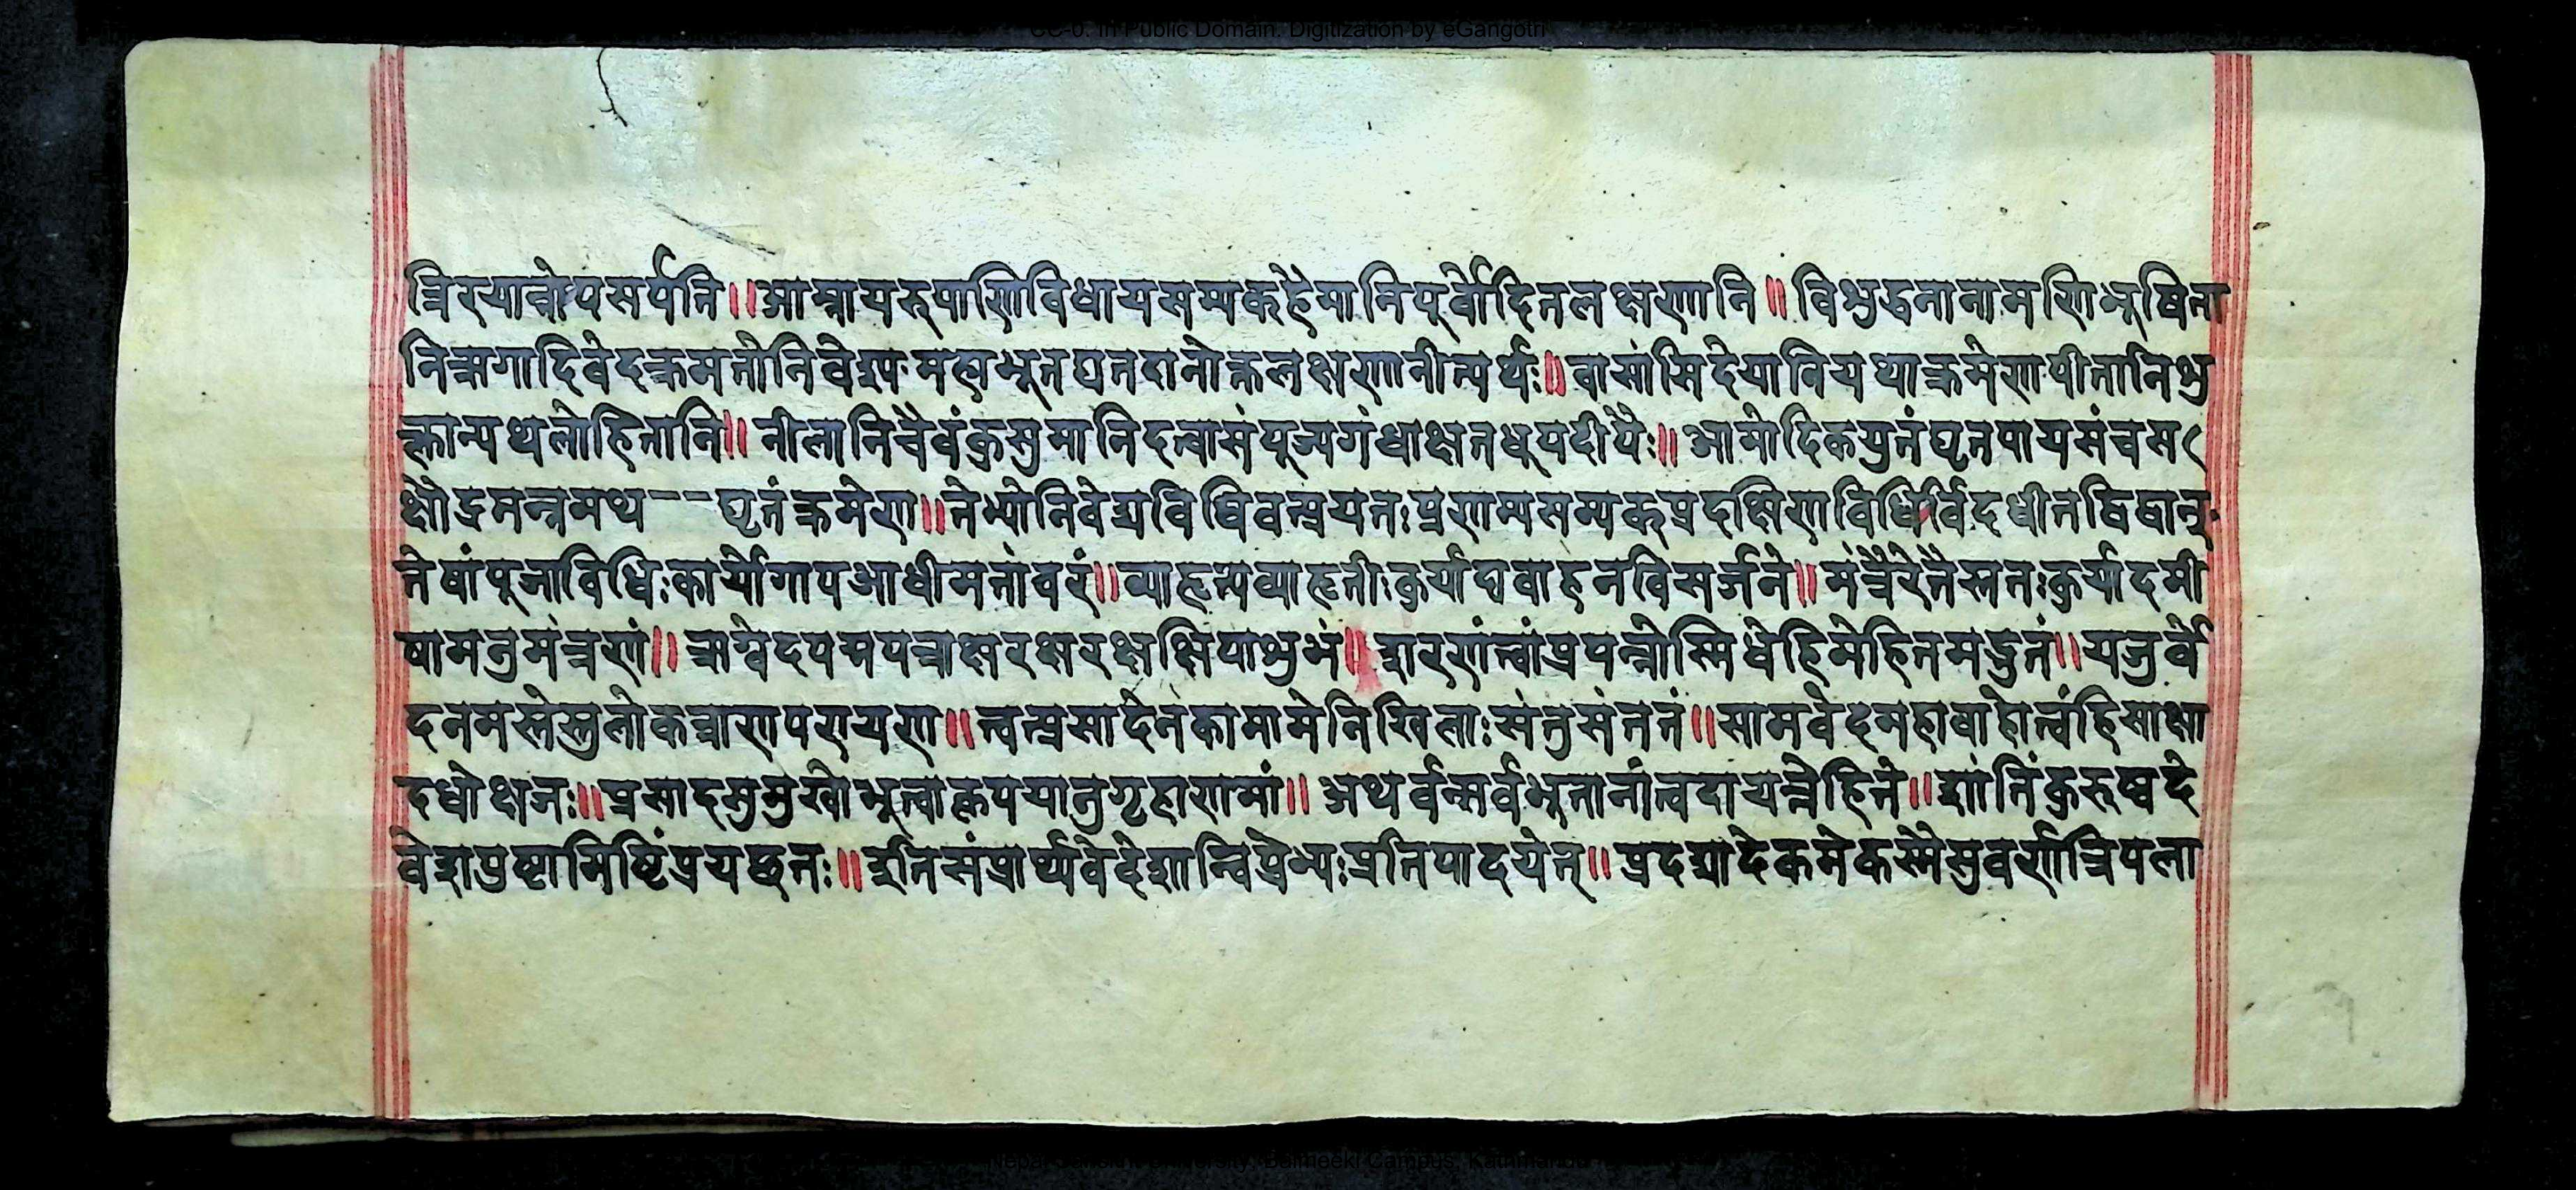 CC-0. In Public Domain. Digitization by eGangotri
त्रिरयात्रोपसर्पति॥आम्नायरूपाणिविधायसम्यकहैमानिपूर्वोदितलक्षणानि॥विशुद्धनानामणिभूषिता
निऋगादिवेदक्रमतोनिवेद्यपःमत्स्यभूतघतदानोक्तलक्षणानीत्यर्थः॥वासांसिदेयानियथाक्रमेणपीतानिशु
क्लान्यथलोहितानि॥नीलानिचैवंकुसुमानिदत्वासंपूज्यगंधाक्षतधूपदीपैः॥आमोदिकयुतंघृतपायसंचस
क्षौद्रमन्नमथ--घृतंक्रमेण॥तेभ्योनिवेद्यविधिवत्प्रयतःप्रणम्यसम्यकप्रदक्षिणविधिंर्विदधीतद्विद्वान्
तेषांपूजाविधिःकार्योगापआधीमतांवरं॥व्याहृत्यव्याहृतीःकुर्याद्यवाहनविसर्जने॥मंत्रैरेतैस्ततःकुर्यादमी
षामनुमंत्रणं॥ऋग्वेदपद्मपत्राक्षरक्षरक्षक्षिपाशुभं॥शरणंत्वांप्रपन्नोस्मिधेहिमेहितमद्भुतं॥यजुर्वे
दनमस्तेस्तुलोकत्राणपरायण॥त्वत्प्रसादेनकामामेनिखिलाःसंतुसंततं॥सामवेदमहाबाहोत्वंहिसाक्षा
दधोक्षजः॥प्रसादसुमुखोभूत्वाकृपयानुगृहाणमां॥अथर्वन्सर्वभूतानांत्वदायत्तेहिते॥शांतिंकुरुष्वदे
वेशपुष्टामिष्टिंप्रयच्छतः॥इतिसंप्रार्थ्यवेदेशान्विप्रेभ्यःप्रतिपादयेत्॥प्रदद्यादेकमेकस्मैसुवर्णत्रिपला